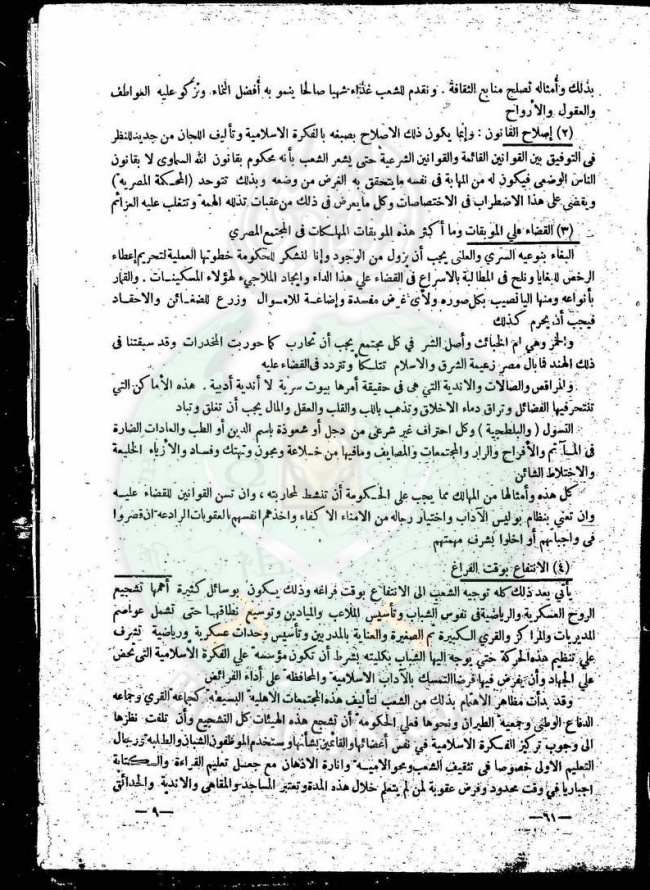 بذلك وأمثاله تصلح منابع الثقافة . ونقدم للشعب غذاء شهيا صالحا ينمو به أفضل النماء وتزكو عليه العواطف
والعقول والأرواح
(٢) إصلاح القانون : وإنما يكون ذلك الاصلاح بصبغه بالفكرة الاسلامية وتأليف اللجان من جديد للنظر
فى التوفيق بين القوانين القائمة والقوانين الشرعية حتى يشعر الشعب بأنه محكوم بقانون الله السماوى لا بقانون
الناس الوضعى فيكون له من المهابة فى نفسه ما يتحقق به الغرض من وضعه وبذلك تتوحد (المحكمة المصرية)
ويقضى على هذا الاضطراب فى الاختصاصات وكل ما يعرض فى ذلك من عقبات تذلله الهمة وتتغلب عليه العزائم
(٣) القضاء على الموبقات وما أكثر هذه الموبقات المهلكات فى المجتمع المصرى
البغاء بنوعيه السري والعلنى يجب أن يزول من الوجود وإنا لنشكر للحكومة خطوتها العملية لتحريم إعطاء
الرخص للبغايا ونلح فى المطالبة بالاسراع فى القضاء علي هذا الداء وإيجاد الملاجىء لهؤلاء المسكينات . والقمار
بأنواعه ومنها اليانصيب بكل صوره ولأى غرض مفسدة وإضاعة للاموال وزرع للضغائن والاحقاد
فيجب أن يحرم كذلك
والخمر وهى ام الخبائث وأصل الشر في كل مجتمع يجب أن تحارب كما حوربت المخدرات وقد سبقتنا فى
ذلك الهند فما بال مصر زعيمة الشرق والاسلام تتلكأ وتتردد فى القضاء عليه
والمراقص والصالات والاندية التى هى فى حقيقة أمرها بيوت سرية لا أندية أدبية . هذه الأماكن التي
تنتحر فيها الفضائل وتراق دماء الاخلاق وتذهب باللب والقلب والعقل والمال يجب أن تغلق وتباد
التسول (والبلطجية) وكل احتراف غير شرعى من دجل أو شعوذة باسم الدين أو الطب والعادات الضارة
فى المآتم والأفراح والزار والمجتمعات والمصايف ومافيها من خلاعة ومجون وتهتك وفساد والأزياء الخليعة
والاختلاط الشائن
كل هذه وأمثالها من المهالك مما يجب على الحكومة أن تنشط لمحاربته ، وان تسن القوانين للقضاء عليه
وان تعني بنظام بوليس الآداب واختيار رجاله من الامناء الاكفاء واخذهم انفسهم بالعقوبات الرادعه ان قصروا
فى واجباتهم أو اخلوا بشرف مهمتهم
(٤) الانتفاع بوقت الفراغ
يأتى بعد ذلك كله توجيه الشعب الى الانتفاع بوقت فراغه وذلك يكون بوسائل كثيرة أهمها تشجيع
الروح العسكرية والرياضية فى نفوس الشباب وتأسيس الملاعب والميادين وتوسيع نطاقها حتى تشمل عواصم
المديريات والمراكز والقري الكبيرة ثم الصغيرة والعناية بالمدربين وتأسيس وحدات عسكرية ورياضية تشرف
علي تنظيم هذه الحركة حتي يوجه اليها الشباب بكليته بشرط أن تكون مؤسسة على الفكرة الاسلامية التى تحض
علي الجهاد وأن يفرض فيها فرضا التمسك بالآداب الاسلامية والمحافظة على أداء الفرائض
وقد بدأت مظاهر الاهتمام بذلك من الشعب لتأليف هذه المجتمعات الاهلية البسيطة كجماعه القري وجماعه
الدفاع الوطنى وجمعية الطيران ونحوها فعلي الحكومة أن تشجع هذه الهيئات كل التشجيع وأن تلفت نظرها
الى وجوب تركيز الفكرة الاسلامية في نفس أعضائها والقائمين بشأنها ويستخدم الموظفون الشبان والطلبه ورجال
التعليم الأولى خصوصا فى تثقيف الشعب ومحو الامية وانارة الاذهان مع جعل تعليم القراءة والكتابة
اجباريا في وقت محدود وفرض عقوبة لمن لم يتعلم خلال هذه المدة وتعتبر المساجد والمقاهى والاندية والحدائق
—٩—
—٦١—